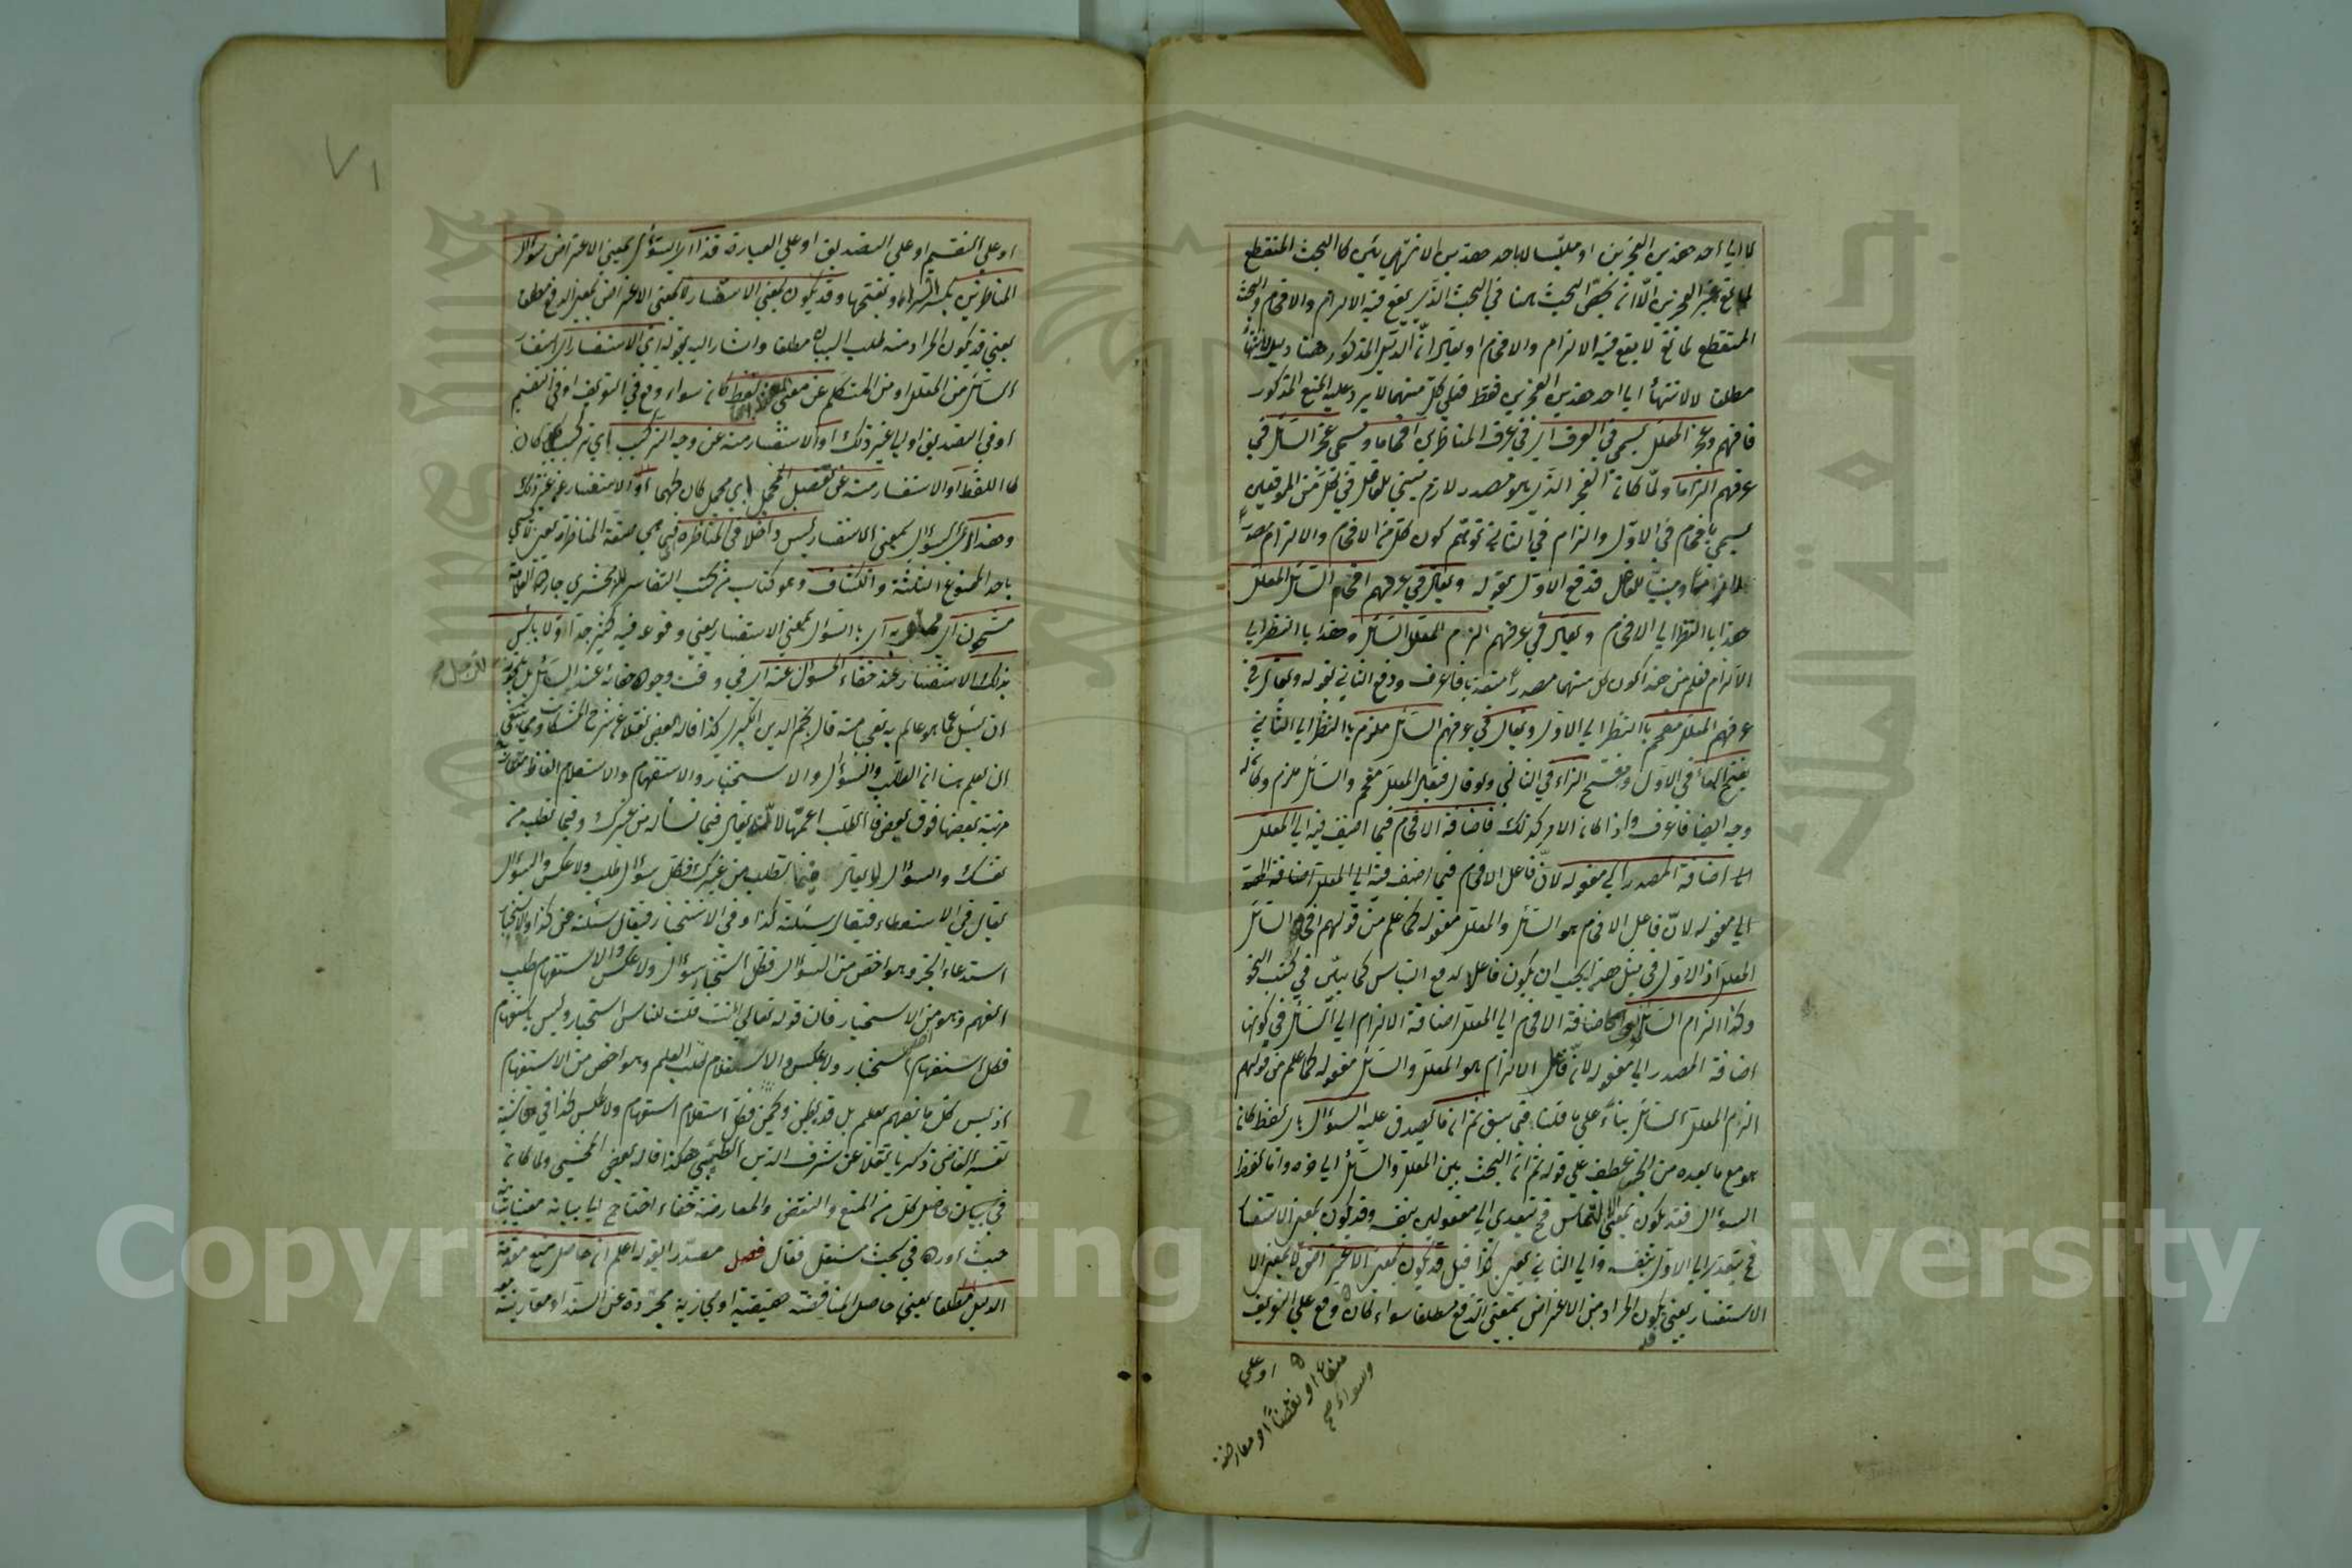 اما الى احد هذين العجزين او ملتبسا لاباحد هذين الانتهائين كالبحث المنقطع
لمانع غير العجزين الا انه يخص البحث ههنا في البحث الذي يقع فيه الالزام والافحام والبحث
المنقطع لمانع لا يقع فيه الالزام والافحام او يقال ان الدليل المذكور ههنا دليل لانتهاء
مطلقا لا لانتهاء الى احد هذين العجزين فقط فعلى كل منهما لا يرد عليه المنع المذكور
فافهم وعجز المعلل يسمى في العرف اي في عرف المناظرين افحاما ويسمى عجز السائل في
عرفهم الزاما ولما كان العجز الذي هو مصدر لازم مبني للفاعل في كل من الموقعين
يسمى بافحام في الاول والزام في الثاني توهم كون كل من الافحام والالزام مصدرا
لازما ومبنيا للفاعل فدفع الاول بقوله ويقال في عرفهم افحم السائل المعلل
هذا بالنظر الى الافحام ويقال في عرفهم الزم المعلل السائل وهذا بالنظر الى
الالزام فعلم من هذا كون كل منهما مصدرا متعديا فاعرف ودفع الثاني بقوله ويقال في
عرفهم المعلل مفحم بالنظر الى الاول ويقال في عرفهم السائل ملزم بالنظر الى الثاني
بفتح الحاء في الاول وفتح الزاء في الثاني ولو قال فيقال المعلل مفحم والسائل ملزم ولكان له
وجه ايضا فاعرف واذا كان الامر كذلك فاضافة الافحام فيما اضيف فيه الى المعلل
اي اضافة المصدر الى مفعوله لان فاعل الافحام فيما اضيف فيه الى المعلل اضافته
الى مفعوله لان فاعل الافحام هو السائل والمعلل مفعوله كما علم من قولهم افحم السائل
المعلل اذ الاول في مثل هذا يجب ان يكون فاعلا لدفع التباس كما بين في كتب النحو
وكذا الزام السائل اي كاضافة الافحام الى المعلل اضافة الالزام الى السائل في كونها
اضافة المصدر الى مفعوله لان فاعل الالزام هو المعلل والسائل مفعوله كما علم من قولهم
الزم المعلل السائل بناء على ما قلنا فيما سبق ثم ان ما يصدق عليه السؤال باي لفظ كان
هو مع ما بعده من الجزء عطف على قوله ثم ان البحث بين المعلل والسائل الى اخره واما لفظ
السؤال فقد يكون بمعنى الالتماس فح يتعدى الى مفعولين بنفسه وقد يكون بمعنى الاستفسار
فح يتعدى الى الاول بنفسه والى الثاني بعن كذا قيل قد يكون بمعنى الاعتراض لا بمعنى الا
الاستفسار يعني يكون المراد من الاعتراض بمعنى الدفع مطلقا سواء كان وقع على التعريف
وسواء كان صح
منعا او نقضا او معارضة
او على
او على التقسيم او على التصديق او على العبارة فذا اي السؤال بمعنى الاعتراض سؤال
المناظرين بكسر الراء وبفتحها وقد يكون بمعنى الاستفسار لا بمعنى الاعتراض بمعنى الدفع مطلقا
يعني قد يكون المراد منه طلب البيان مطلقا واشار اليه بقوله اي الاستفسار اي استفسار
السائل من المعلل او من المتكلم عن معنى اللفظ كان سواء وقع في التعريف او في التقسيم
او في التصديق او الى غير ذلك او الاستفسار منه عن وجه التركيب اي تركيب كان
كاللفظ او الاستفسار منه عن تفصيل المجمل اي مجمل كان كهما او الاستفسار عن غير ذلك
وهذا اي السؤال بمعنى الاستفسار ليس داخلا في المناظرة فهي صفة المناظرة يعني لا يسمى
باحد المنوع الثلثة والكشاف وهو كتاب من كتب التفاسير للزمخشري جار الله العلامة
مشحون اي مملو به اي بالسؤال بمعنى الاستفسار يعني وقوعه فيه كثير جدا ولا بأس
بذلك الاستفسار عند خفاء المسؤل عنه اي في وقت وجود خفائه عند السائل بل يجوز
ان يسئل عما هو عالم به تعجبا منه قال نجم الدين الكبرى كذا قاله بعض نقلا عن شرح المشكاة ومما ينبغي
ان يعلم هنا ان الطلب والسؤال والاستخبار والاستفهام والاستعلام الفاظ متقاربة
مرتبة بعضها فوق بعض فالطلب اعمها لانه يقال فيما تسأله من غيرك وفيما تطلبه من
نفسك والسؤال لا يقال الا فيما تطلب من غيرك فكل سؤال طلب ولا عكس والسؤال
يقال في الاستعطاء فيقال سئلته كذا وفي الاستخبار فيقال سئلته عن كذا والاستخبار
استدعاء الخبر وهو اخص من السؤال فكل استخبار سؤال ولا عكس والاستفهام طلب
الفهم وهو من الاستخبار فان قوله تعالى اانت قلت للناس استخبار وليس باستفهام
فكل استفهام استخبار ولا عكس والاستعلام طلب العلم وهو اخص من الاستفهام
اذ ليس كل ما يفهم يعلم بل قد يظن ويخمن فكل استعلام استفهام ولا عكس كذا في حاشية
تفسير القاضي ذكريا نقلا عن شرف الدين الطيبي هكذا قاله بعض المحشي ولما كان
في بيان حاصل كل من المنع والنقض والمعارضة خفاء احتاج الى بيانه معتنيا بشانه
حيث اورده في بحث مستقل فقال فصل مصدرا بقوله اعلم ان حاصل منع مقدمة
الدليل مطلقا يعني حاصل المناقضة حقيقية او مجازية مجردة عن السند او مقارنة
٧١
Copyright © King Saud University
1957